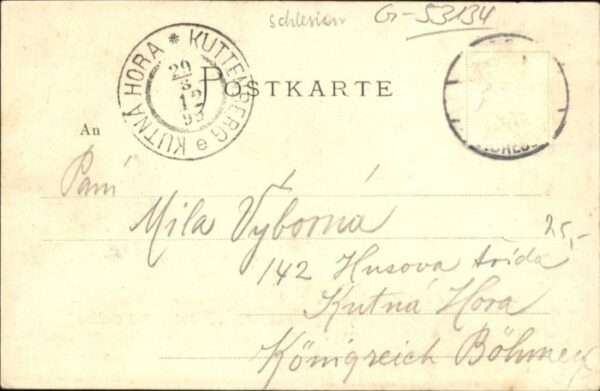 Schlesien G-53134
KUTTENBERG e KUTNÁ HORA *
29
3
12
98
POSTKARTE
An
Paní
Mila Výborná
25,-
142 Husova třída
Kutná Hora
Königreich Böhmen